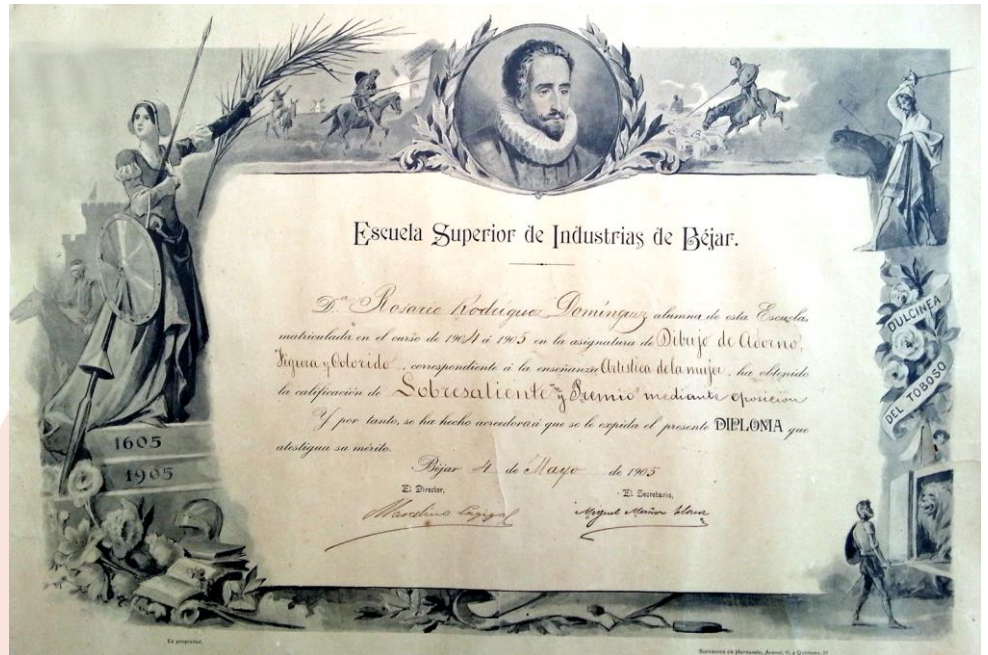 Escuela Superior de Industrias de Béjar.
Dª Rosario Rodríguez Domínguez alumna de esta Escuela,
matriculada en el curso de 1904 á 1905 en la asignatura de Dibujo de Adorno,
Figura y Colorido, correspondiente á la enseñanza Artística de la mujer, ha obtenido
la calificación de Sobresaliente y Premio mediante oposición
Y por tanto, se ha hecho acreedora á que se le expida el presente DIPLOMA que
atestigua su mérito.
Béjar 4 de Mayo de 1905
El Director,
El Secretario,
Marcelino
Miguel Muñoz
1605
1905
DULCINEA
DEL TOBOSO
Es propiedad.
Sucesores de Hernando, Arenal, 11, y Quintana,